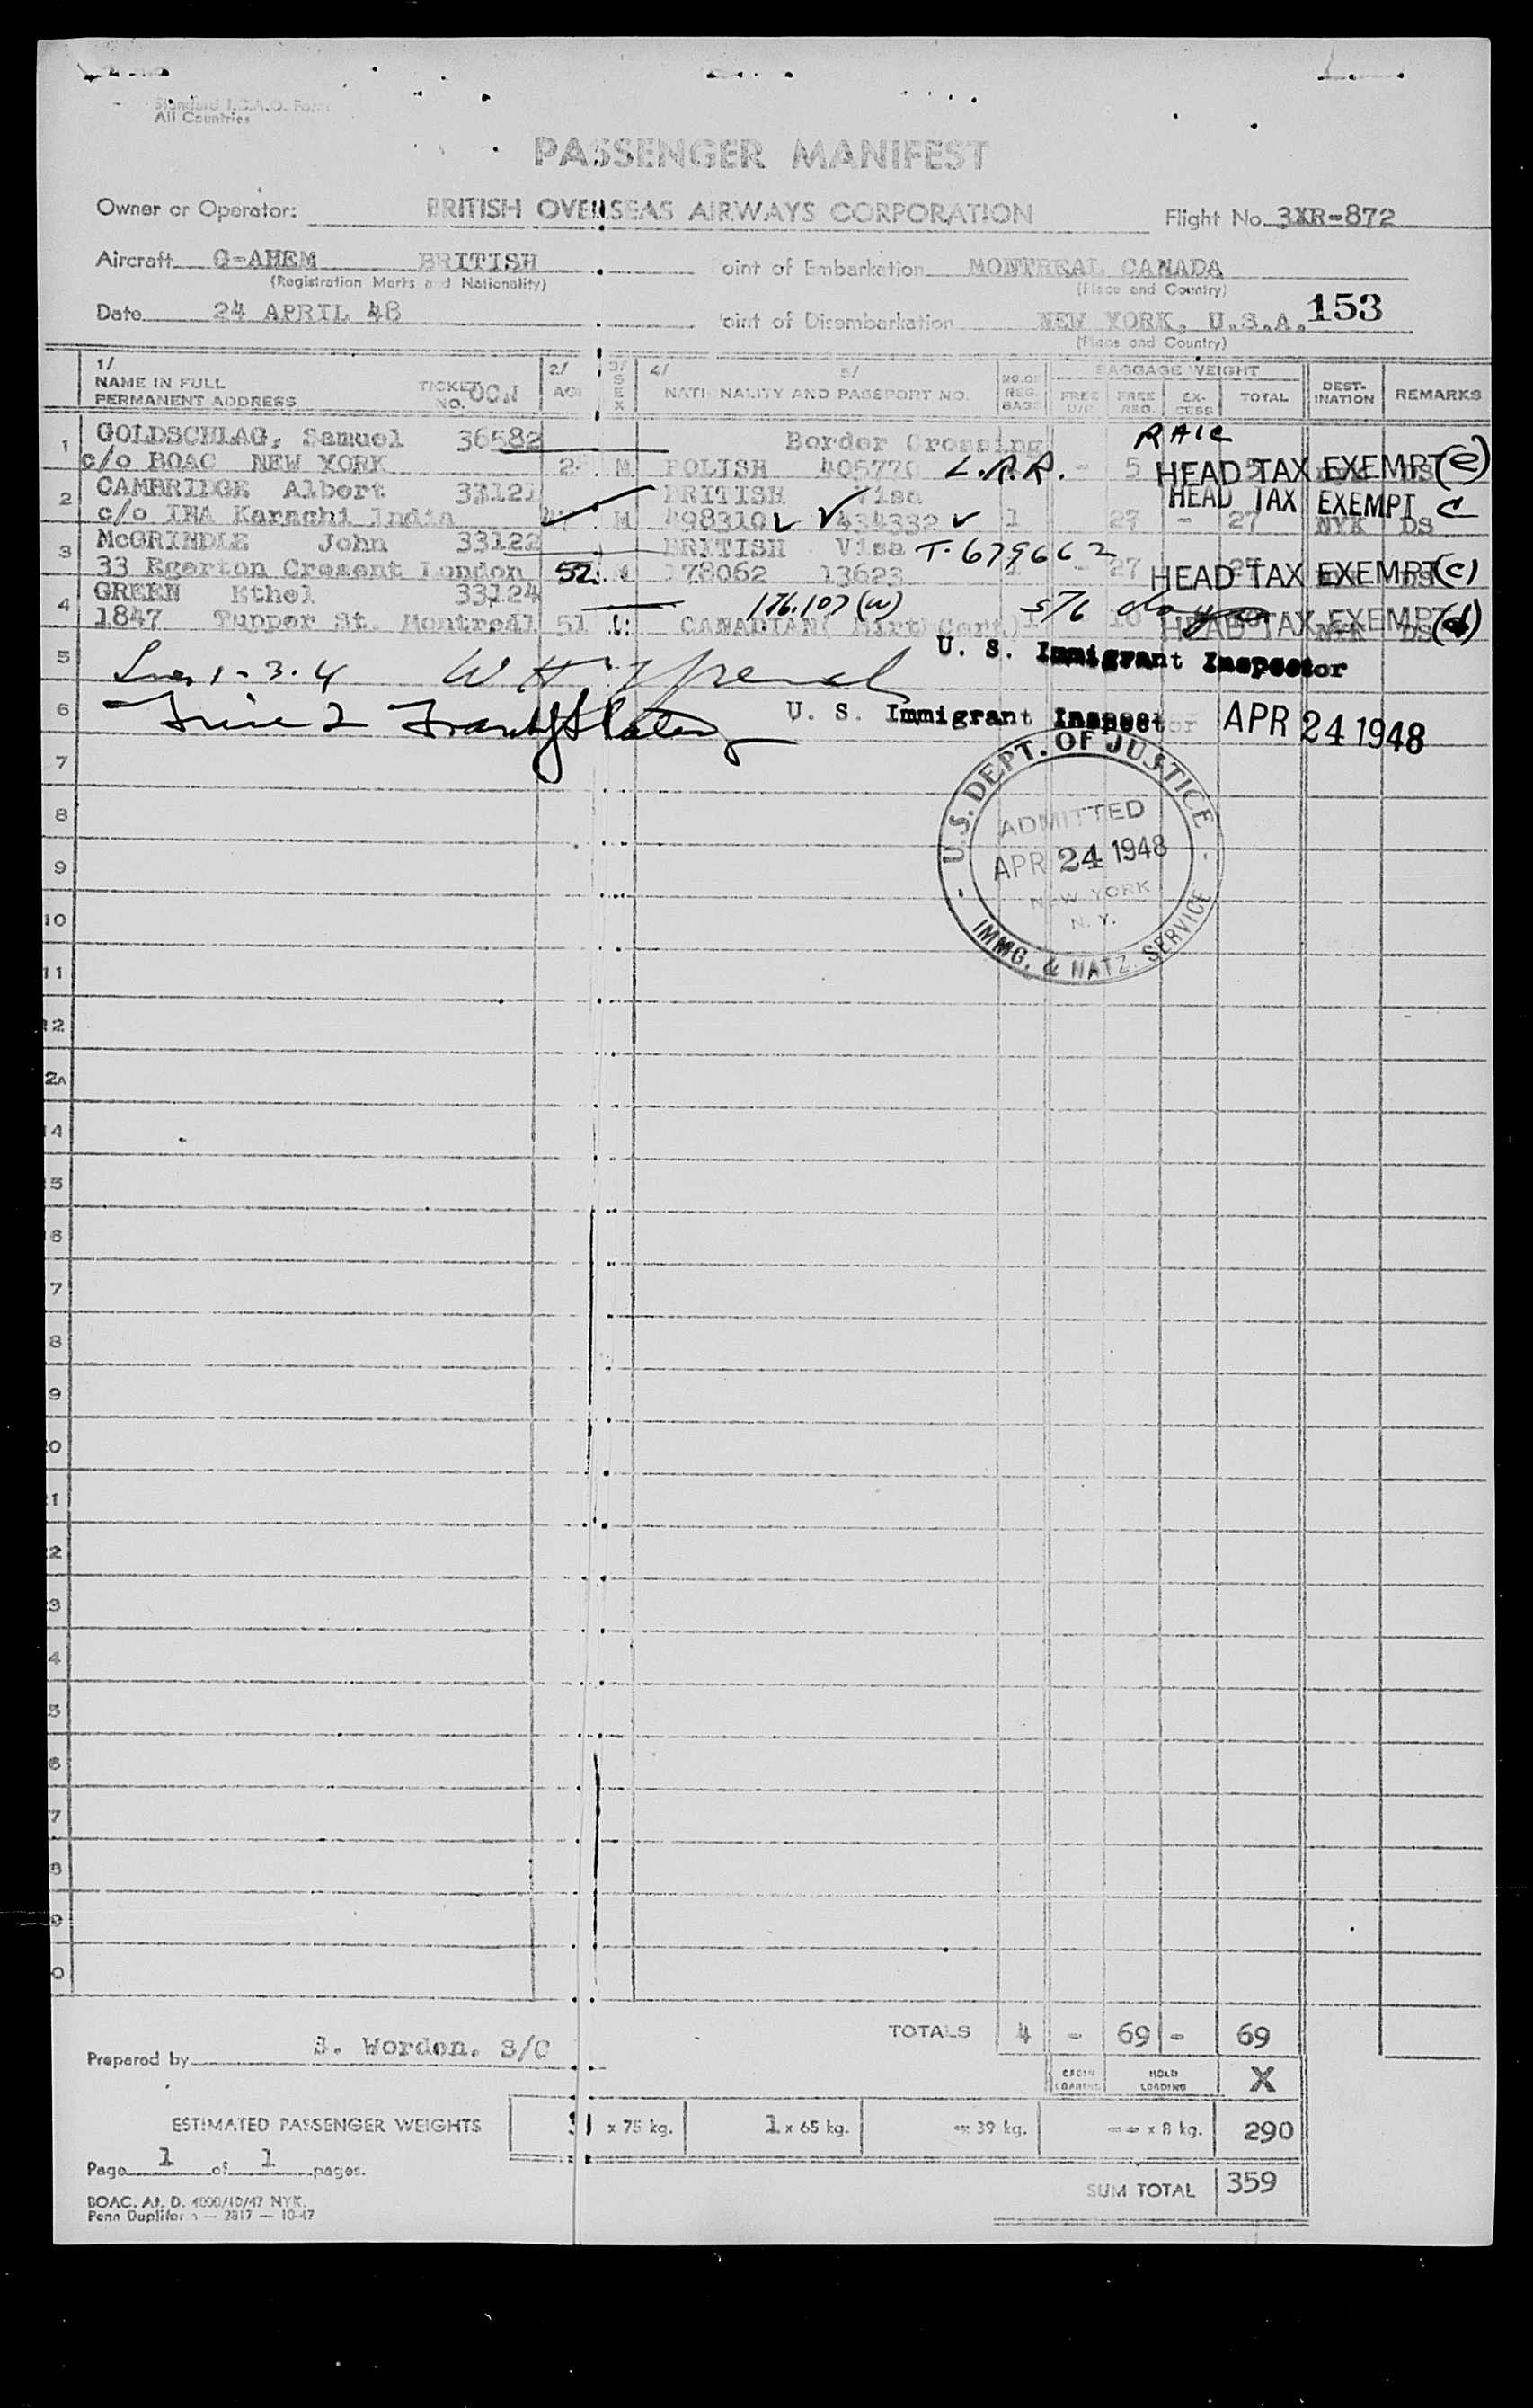 Standard I.C.A.O. Form
All Countries
PASSENGER MANIFEST
Owner or Operator: BRITISH OVERSEAS AIRWAYS CORPORATION Flight No. 3XR-872
Aircraft G-AHEM BRITISH Point of Embarkation MONTREAL CANADA
(Registration Marks and Nationality) (Place and Country)
Date 24 APRIL 48 Point of Disembarkation NEW YORK, U.S.A. 153
(Place and Country)
1/ NAME IN FULL PERMANENT ADDRESS TICKET NO. 2/ AGE 3/ SEX 4/ 5/ NATIONALITY AND PASSPORT NO. NO. OF REG. BAGS BAGGAGE WEIGHT FREE U/R FREE REG. EXCESS TOTAL DESTINATION REMARKS
1 GOLDSCHLAG, Samuel 36582 Border Crossing RAIC
c/o BOAC NEW YORK M POLISH 405770 L.R.R. - 5 HEAD TAX EXEMPT (e)
2 CAMBRIDGE Albert 33121 BRITISH Visa HEAD TAX EXEMPT C
c/o Karachi India M 498310 434332 1 27 - 27 NYK DS
3 McGRINDLE John 33122 BRITISH Visa T-679662
33 Egerton Cresent London 52 M 178062 13623 1 - 27 27 HEAD TAX EXEMPT (c)
4 GREEN Ethel 33124 176.107 (w) days
1847 Tupper St. Montreal 51 CANADIAN( Birth Cert.) 1 10 HEAD TAX EXEMPT (d) NYK DS
U. S. Immigrant Inspector
5 1-3-4
6 Line 2 U. S. Immigrant Inspector APR 24 1948
7
8
9
10
11
12
2A
14
15
16
7
8
9
20
21
22
3
4
5
6
7
8
9
0
U.S. DEPT. OF JUSTICE
ADMITTED
APR 24 1948
NEW YORK
N. Y.
IMMG. & NATZ. SERVICE
TOTALS 4 - 69 - 69
Prepared by S. Worden. S/C
CABIN LOADING HOLD LOADING X
ESTIMATED PASSENGER WEIGHTS x 75 kg. 1 x 65 kg. 39 kg. x 8 kg. 290
Page 1 of 1 pages.
SUM TOTAL 359
BOAC. Af. D. 4000/10/47 NYK.
Penn Dupliform — 2817 — 10-47